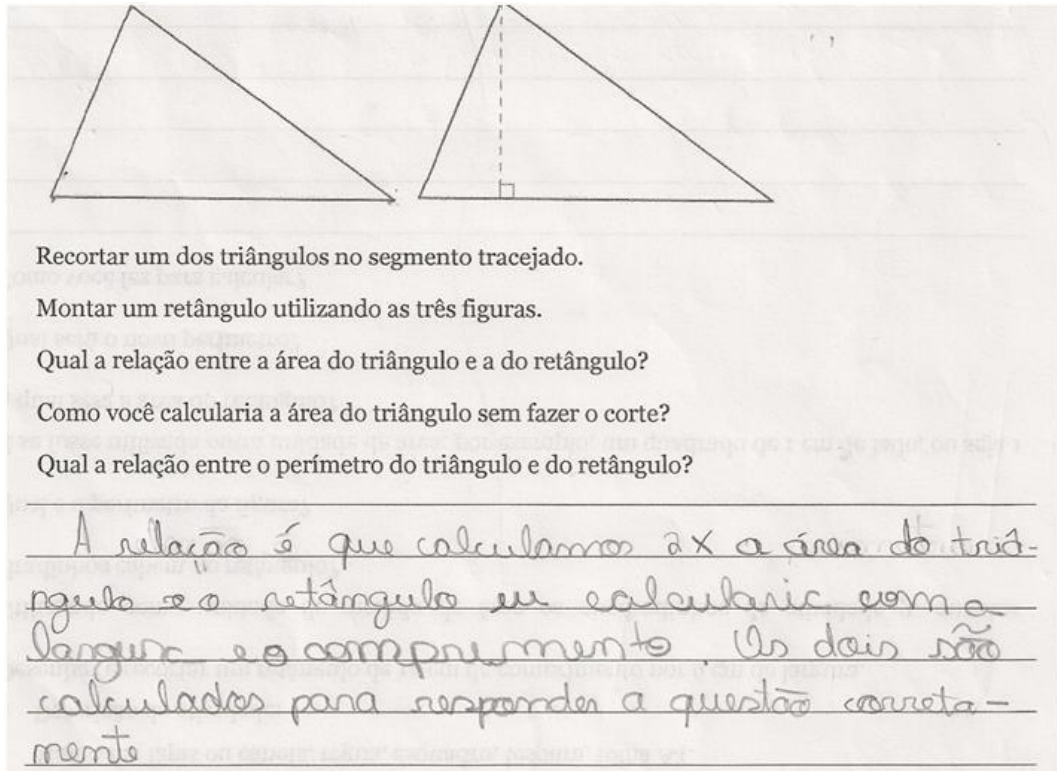 Recortar um dos triângulos no segmento tracejado.
Montar um retângulo utilizando as três figuras.
Qual a relação entre a área do triângulo e a do retângulo?
Como você calcularia a área do triângulo sem fazer o corte?
Qual a relação entre o perímetro do triângulo e do retângulo?
A relação é que calculamos 2x a área do triâ-
ngulo e o retângulo eu calcularia com a
largura e o comprimento. Os dois são
calculados para responder a questão correta-
mente